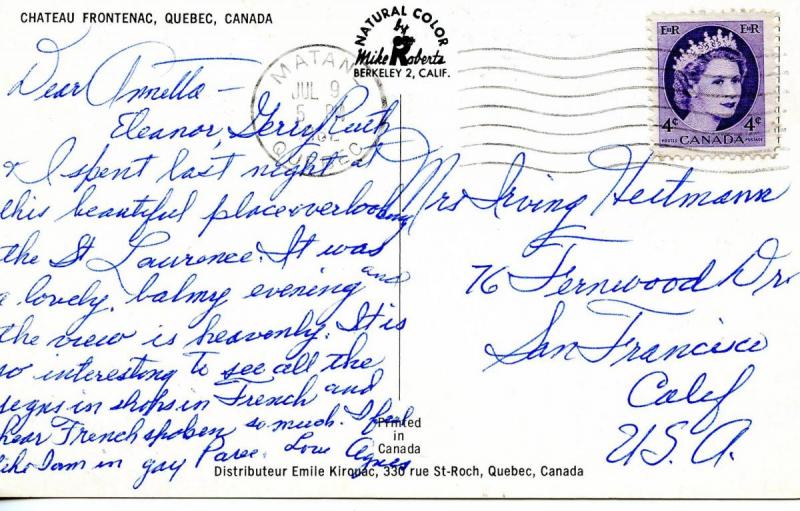 CHATEAU FRONTENAC, QUEBEC, CANADA
NATURAL COLOR
by
Mike Roberts
BERKELEY 2, CALIF.
MATANE
JUL 9
5 PM
QUEBEC
E II R E II R
4¢ 4¢
POSTES POSTAGE
CANADA
Dear Annetta –
Eleanor, Gerry, Ruth
& I spent last night at
this beautiful place overlooking
the St Lawrence. It was
a lovely, balmy evening and
the view is heavenly. It is
so interesting to see all the
signs in shops in French and
hear French spoken so much. I feel
like I am in gay Paree. Love Agnes
Mrs Irving Heitmann
76 Fernwood Dr.
San Francisco
Calif
U.S.A.
Printed
in
Canada
Distributeur Emile Kirouac, 330 rue St-Roch, Quebec, Canada